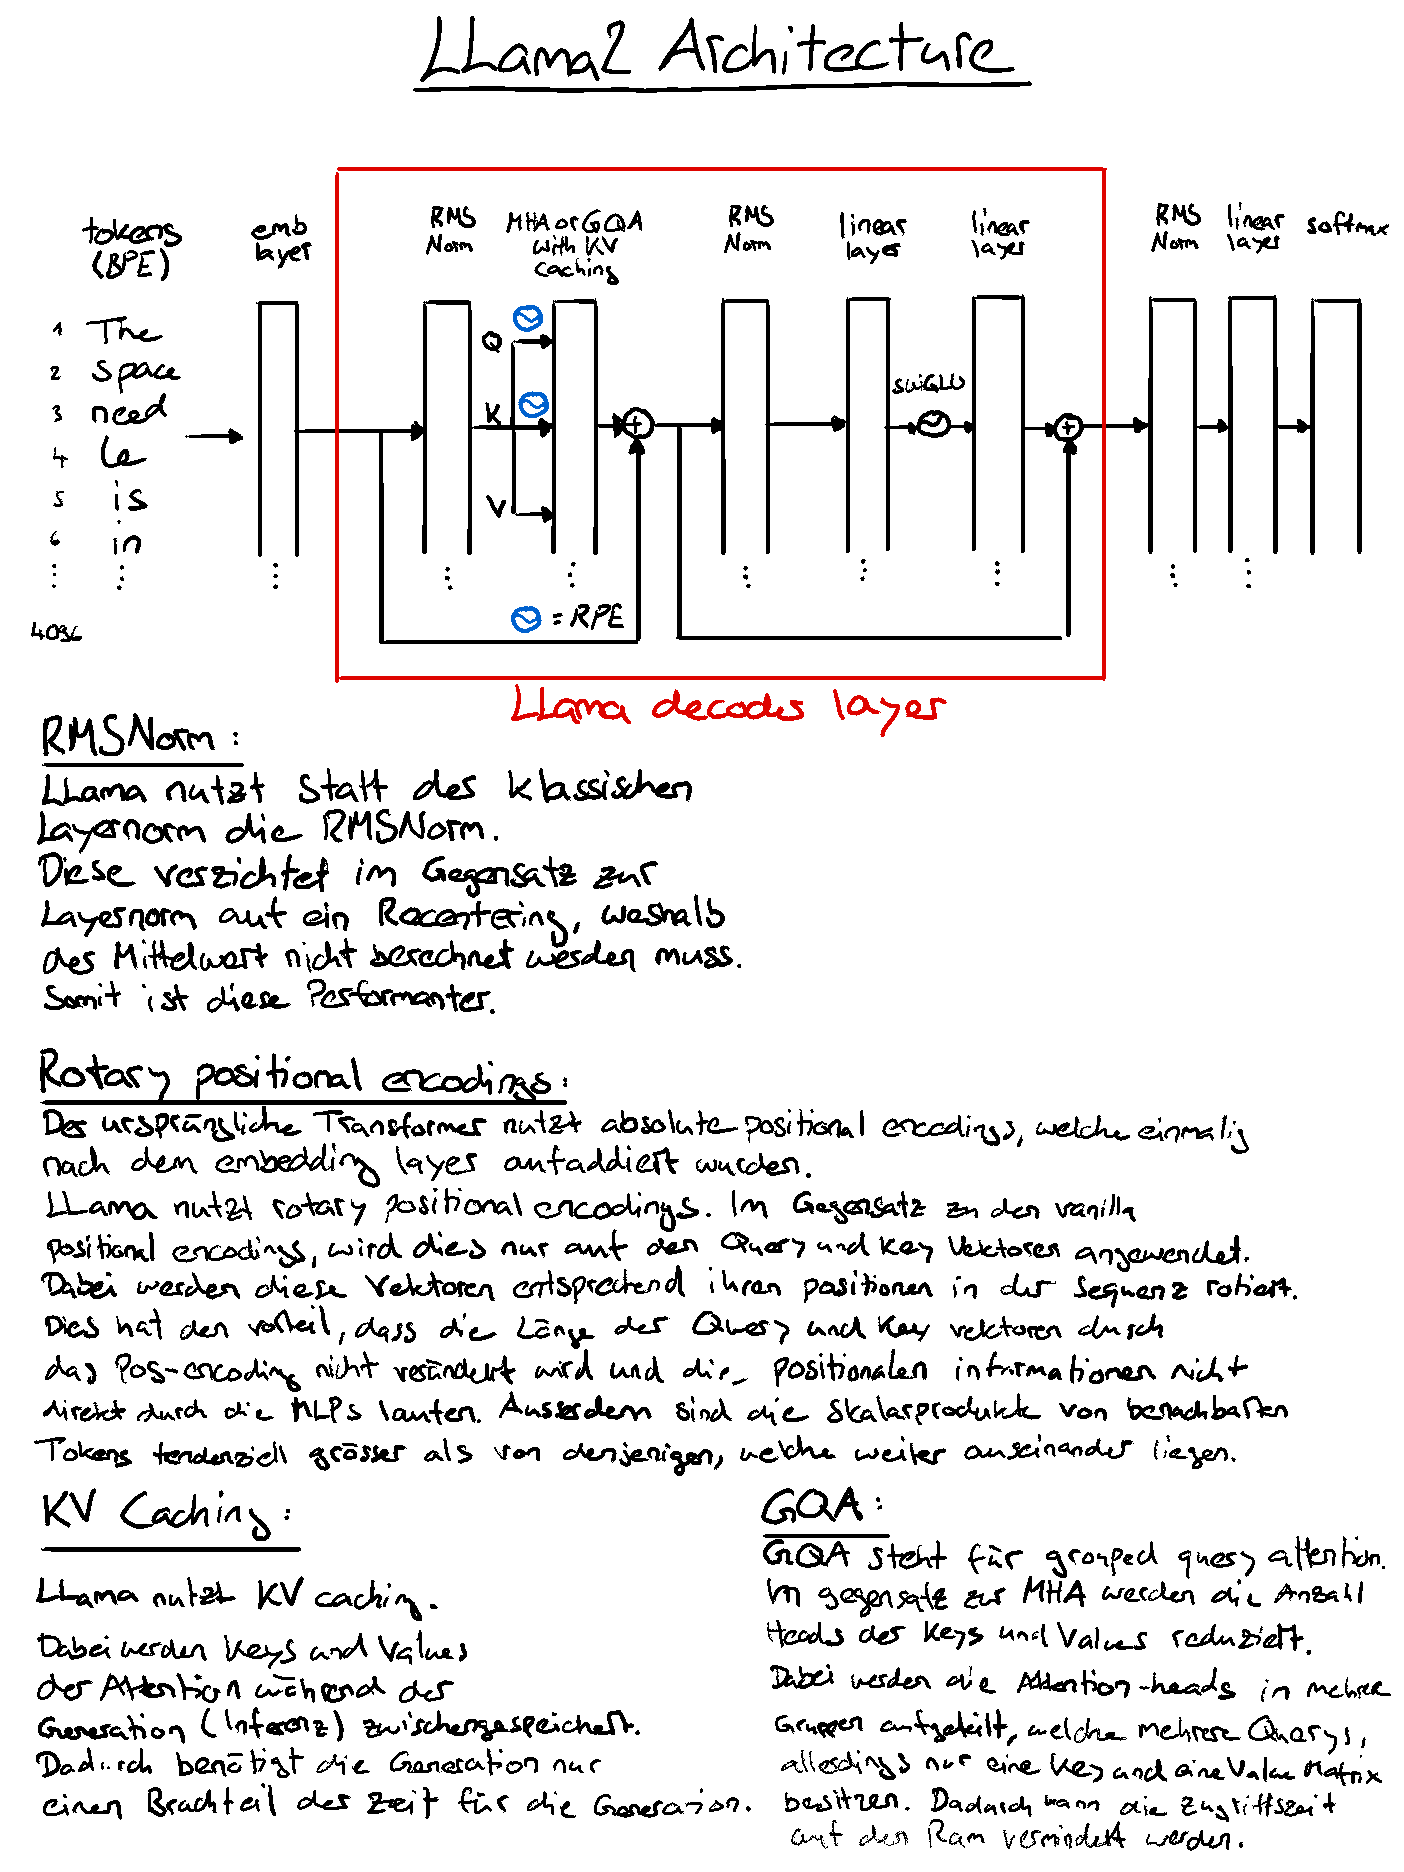 LLama2 Architecture
tokens
(BPE)
emb
layer
RMS
Norm
MHA or GQA
with KV
caching
RMS
Norm
linear
layer
linear
layer
RMS
Norm
linear
layer
softmax
1 The
2 space
3 need
4 le
5 is
6 in
4096
Q
K
V
SwiGLU
= RPE
LLama decoder layer
RMSNorm:
LLama nutzt statt der klassischen
Layernorm die RMSNorm.
Diese verzichtet im Gegensatz zur
Layernorm auf ein Recentering, weshalb
der Mittelwert nicht berechnet werden muss.
Somit ist diese Performanter.
Rotary positional encodings:
Der ursprüngliche Transformer nutzt absolute positional encodings, welche einmalig
nach dem embedding layer aufaddiert wurden.
LLama nutzt rotary positional encodings. Im Gegensatz zu den vanilla
positional encodings, wird dies nur auf den Query und Key Vektoren angewendet.
Dabei werden diese Vektoren entsprechend ihren positionen in der Sequenz rotiert.
Dies hat den vorteil, dass die Länge der Query und Key vektoren durch
das Pos-encoding nicht verändert wird und die positionalen informationen nicht
direkt durch die MLPs laufen. Ausserdem sind die Skalarprodukte von benachbarten
Tokens tendenziell grösser als von denjenigen, welche weiter auseinander liegen.
KV Caching:
LLama nutzt KV caching.
Dabei werden Keys und Values
der Attention während der
Generation (Inferenz) zwischengespeichert.
Dadurch benötigt die Generation nur
einen Bruchteil der Zeit für die Generation.
GQA:
GQA steht für grouped query attention.
Im gegensatz zur MHA werden die Anzahl
Heads der Keys und Values reduziert.
Dabei werden die Attention-heads in mehrere
Gruppen aufgeteilt, welche mehrere Querys,
allerdings nur eine Key und eine Value Matrix
besitzen. Dadurch kann die Zugriffszeit
auf den Ram vermindert werden.